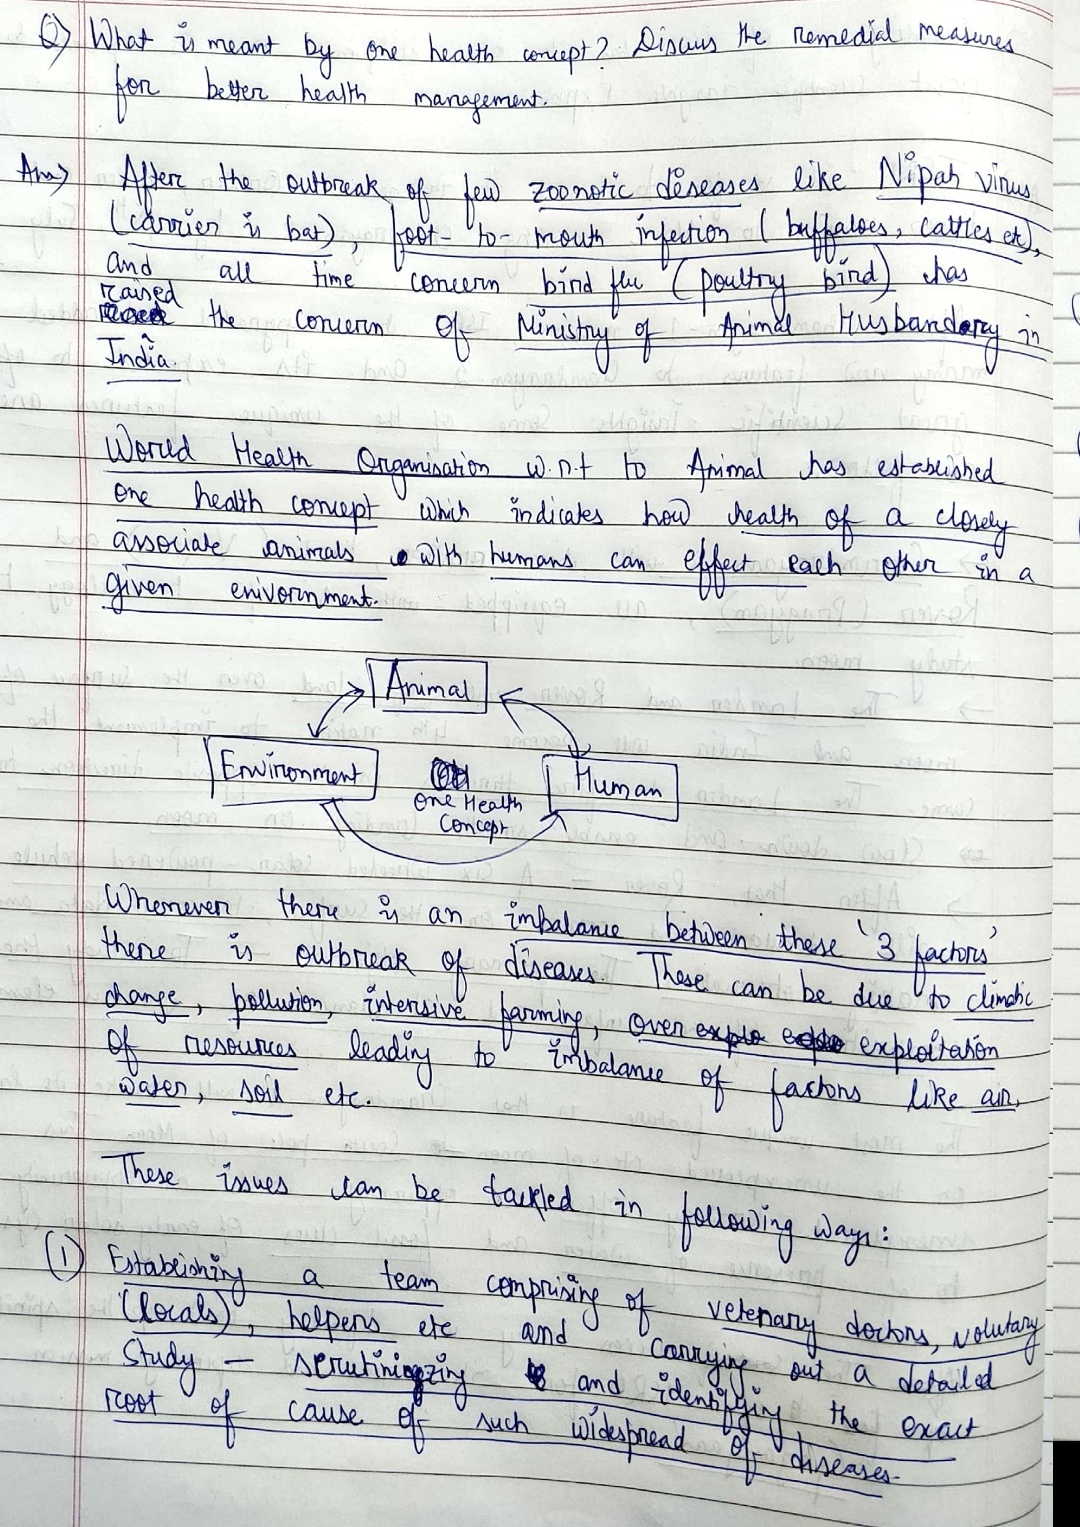 Q) What is meant by one health concept? Discuss the remedial measures
for better health management.
Ans) After the outbreak of few zoonotic diseases like Nipah virus
(carrier is bat), foot-to-mouth infection (buffaloes, cattles etc),
and all time concern bird flu (poultry bird) has
raised the concern of Ministry of Animal Husbandary in
India.
World Health Organisation w.r.t to Animal has established
one health concept which indicates how health of a closely
associate animals with humans can effect each other in a
given enivornment.
Animal
Environment
Human
One Health
Concept
Whenever there is an imbalance between these '3 factors'
there is outbreak of diseases. These can be due to climatic
change, pollution, intensive farming, over exploitation
of resources leading to imbalance of factors like air,
water, soil etc.
These issues can be tackled in following ways:
(1) Establishing a team comprising of vetenary doctors, volutary
(locals), helpers etc and carrying out a detailed
study - scrutinizing and identifying the exact
root of cause of such widespread of diseases.